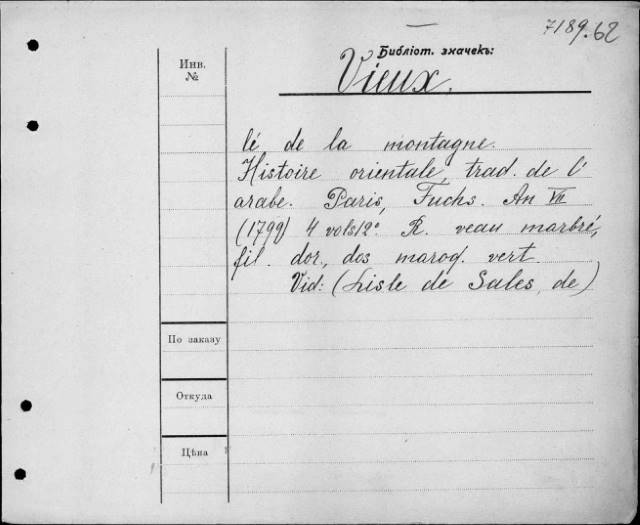 7189.62
Библіот. значекъ:
Инв.
№
Vieux.
lé de la montagne.
Histoire orientale, trad. de l'
arabe. Paris, Fuchs. An VII
(1799) 4 vols 12° R. veau marbré,
fil. dor., dos maroq. vert
Vid: (Lisle de Sales, de)
По заказу
Откуда
Цѣна